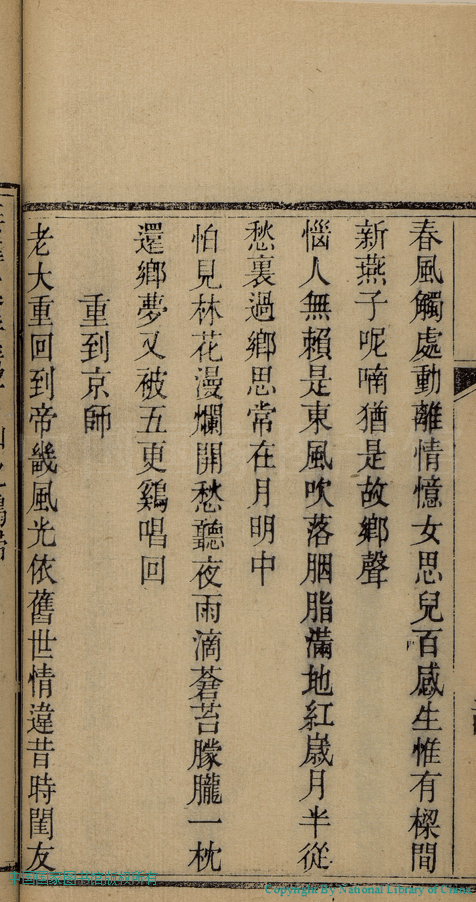 春風觸處動離情憶女思兒百感生惟有樑間
新燕子呢喃猶是故鄉聲
惱人無賴是東風吹落胭脂滿地紅嵗月半從
愁裏過鄉思常在月明中
怕見林花漫爛開愁聽夜雨滴蒼苔朦朧一枕
還鄉夢又被五更鷄唱回
重到京師
老大重回到帝畿風光依舊世情違昔時閨友
Copyright By National Library of China